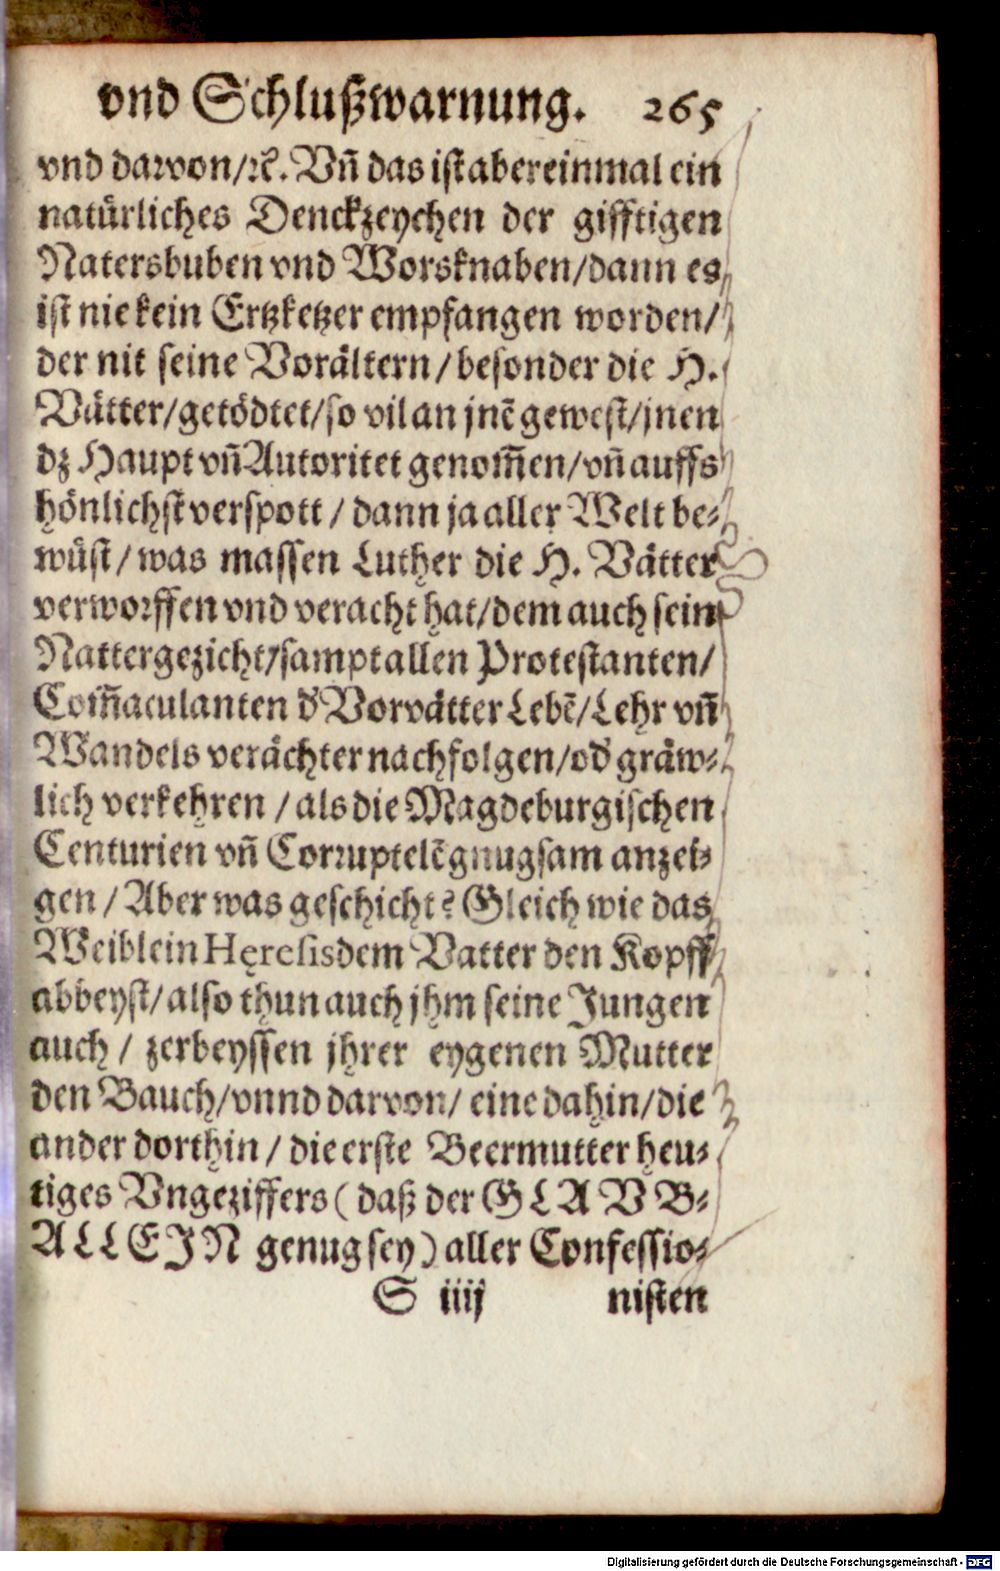 vnd Schlußwarnung. 265
vnd darvon/ꝛc̃. Vñ das ist abereinmal ein
natürliches Denckzeychen der gifftigen
Natersbuben vnd Worsknaben/dann es
ist nie kein Ertzketzer empfangen worden/
der nit seine Vorältern/besonder die H.
Vätter/getödtet/so vil an jnẽ gewest/jnen
dz Haupt vñ Autoritet genom̃en/vñ auffs
hönlichst verspott/dann ja aller Welt be-
wüst/was massen Luther die H. Vätter
verworffen vnd veracht hat/dem auch sein
Nattergezicht/sampt allen Protestanten/
Com̃aculanten d' Vorvätter Lebẽ/Lehr vñ
Wandels verächter nachfolgen/od' gräw-
lich verkehren/als die Magdeburgischen
Centurien vñ Corruptelẽ gnugsam anzei-
gen/Aber was geschicht? Gleich wie das
Weiblein Hęresis dem Vatter den Kopff
abbeyst/also thun auch jhm seine Jungen
auch/zerbeyssen jhrer eygenen Mutter
den Bauch/vnnd darvon/eine dahin/die
ander dorthin/die erste Beermutter heu-
tiges Vngeziffers (daß der GLAVB-
ALLEIN genug sey) aller Confessio-
S iiij nisten
Digitalisierung gefördert durch die Deutsche Forschungsgemeinschaft - DFG